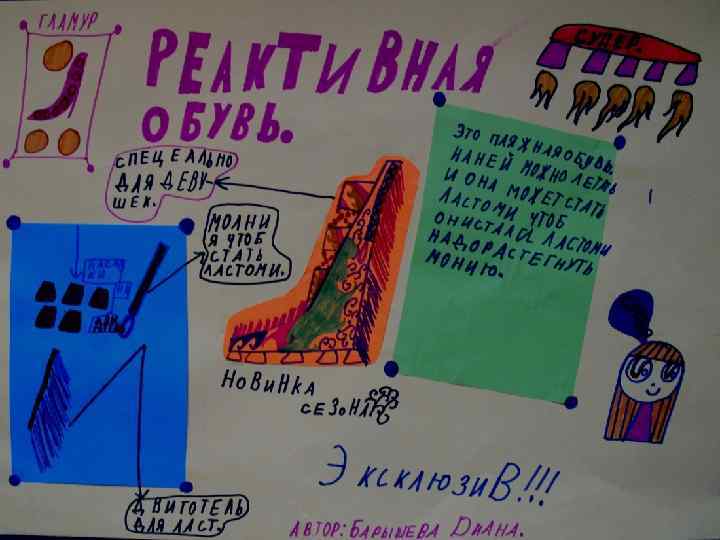 ГЛАМУР
РЕАКТИВНАЯ
ОБУВЬ.
СУПЕР.
СПЕЦЕАЛЬНО
ДЛЯ ДЕВУ-
ШЕК.
МОЛНИ
Я ЧТОБ
СТАТЬ
ЛАСТОМИ.
ЭТО ПЛЯЖНАЯ ОБУВЬ.
НА НЕЙ МОЖНО ЛЕТЯТЬ
И ОНА МОЖЕТ СТАТЬ
ЛАСТОМИ ЧТОБ
ОНИ СТАЛИ ЛАСТОМИ
НАДО РАСТЕГНУТЬ
МОНИЮ.
НОВИНКА
СЕЗОНА
ЭКСКЛЮЗИВ!!!
ДВИТОТЕЛЬ
ДЛЯ ЛАСТ.
АВТОР: БАРЫШЕВА ДИАНА.